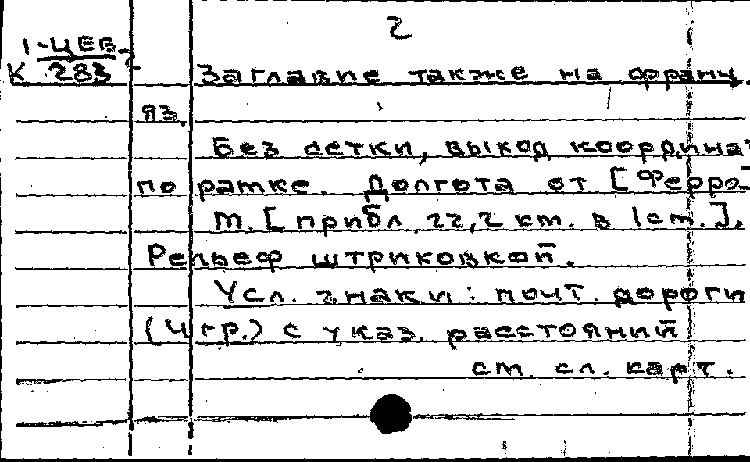 2
1-ЦЕВ
К 283
Заглавие также на франц.
яз.
Без сетки, выход координат
по рамке. Долгота от [Ферро]
М. [прибл. 22,2 км. в 1 см.].
Рельеф штриховкой.
Усл. знаки: почт. дороги
(4 гр.) с указ. расстояний
см. сл. карт.